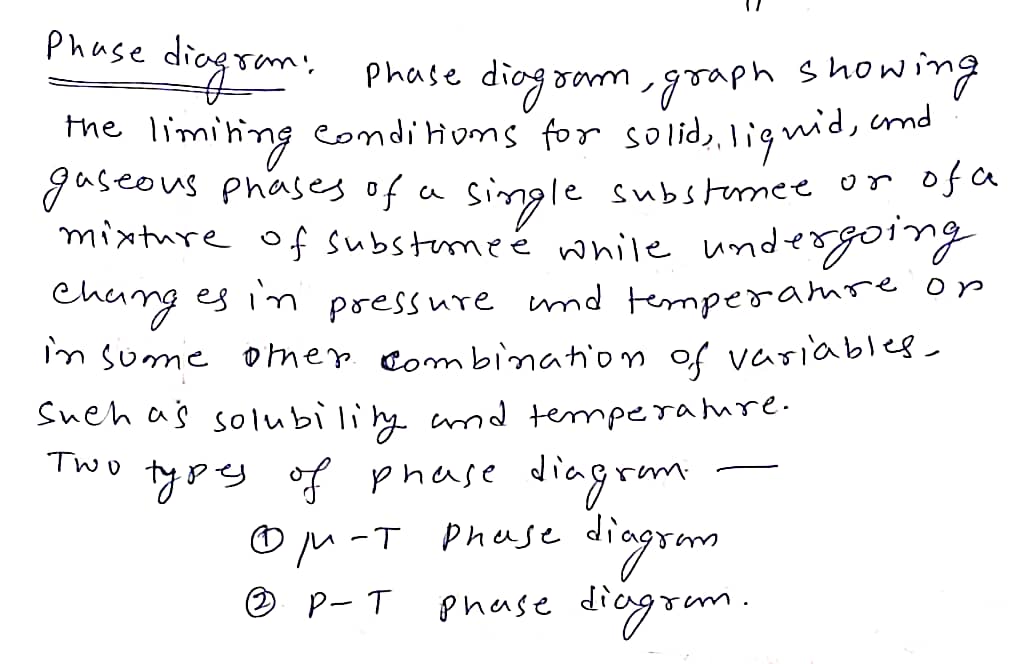 Phase diagram: Phase diagram, graph showing
the limiting conditions for solid, liquid, and
gaseous phases of a single substance or of a
mixture of substance while undergoing
changes in pressure and temperature or
in some other combination of variables
such as solubility and temperature.
Two types of phase diagram —
① μ-T Phase diagram
② P-T phase diagram.